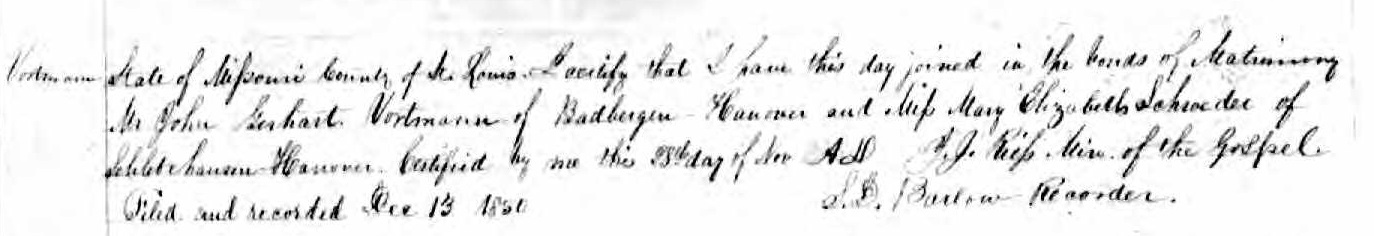 Vortmann State of Missouri County of St. Louis. I certify that I have this day joined in the bonds of Matrimony
Mr John Gerhart Vortmann of Badbergen Hanover and Miss Mary Elizabeth Schroeder of
Hanover. Certified by me this 28th day of Nov AD J. J. Riess Min. of the Gospel.
Filed and recorded Dec 13 1850 S. D. Barlow Recorder.